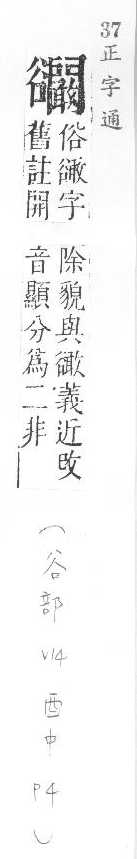 37正字通
俗字
舊註開
除貌與義近攺
音顯分為二非
（谷部 V14 酉中 P4）